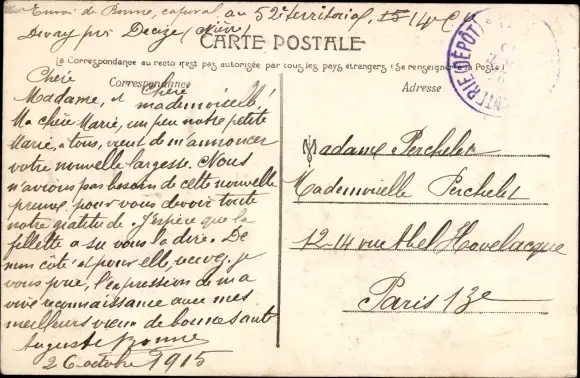 Envoi de Bonne, caporal au 52e territorial, 14e Cie
Devay par Decize (Nièvre)
CARTE POSTALE
La Correspondance au recto n'est pas autorisée par tous les pays étrangers (Se renseigner à la Poste)
Correspondance
Adresse
INFANTERIE (DÉPÔT)
Chère
Madame, et chère mademoiselle!
Ma chère Marie, un peu notre petite
Marie, à tous, vient de m'annoncer
votre nouvelle largesse. Nous
n'avions pas besoin de cette nouvelle
preuve pour vous devoir toute
notre gratitude. J'espère que la
fillette a su vous la dire. De
mon côté et pour elle, recevez, je
vous prie, l'expression de ma
vive reconnaissance avec mes
meilleurs vœux de bonne santé
Auguste Bonne
26 octobre 1915
Madame Perchelet
Mademoiselle Perchelet
12-14 rue Abel Hovelacque
Paris 13e